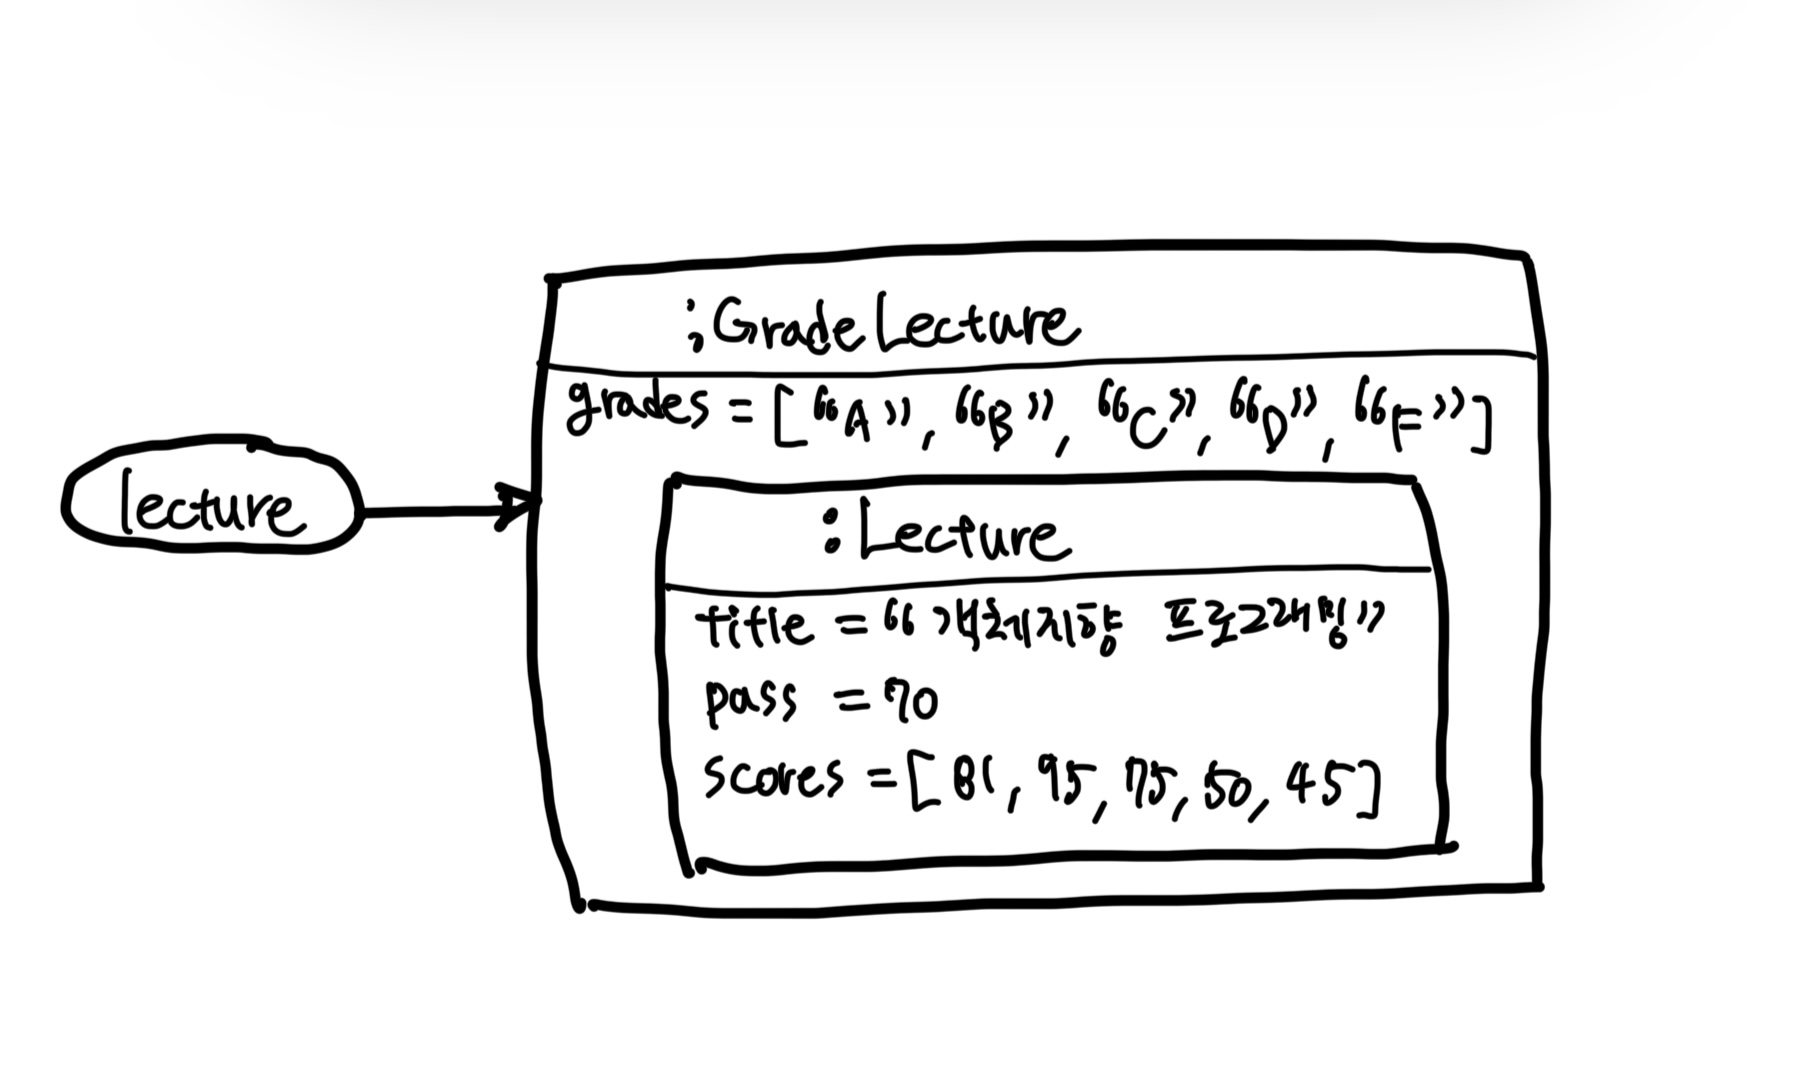 lecture
:GradeLecture
grades = ["A", "B", "C", "D", "F"]
:Lecture
title = "객체지향 프로그래밍"
pass = 70
scores = [81, 95, 75, 50, 45]